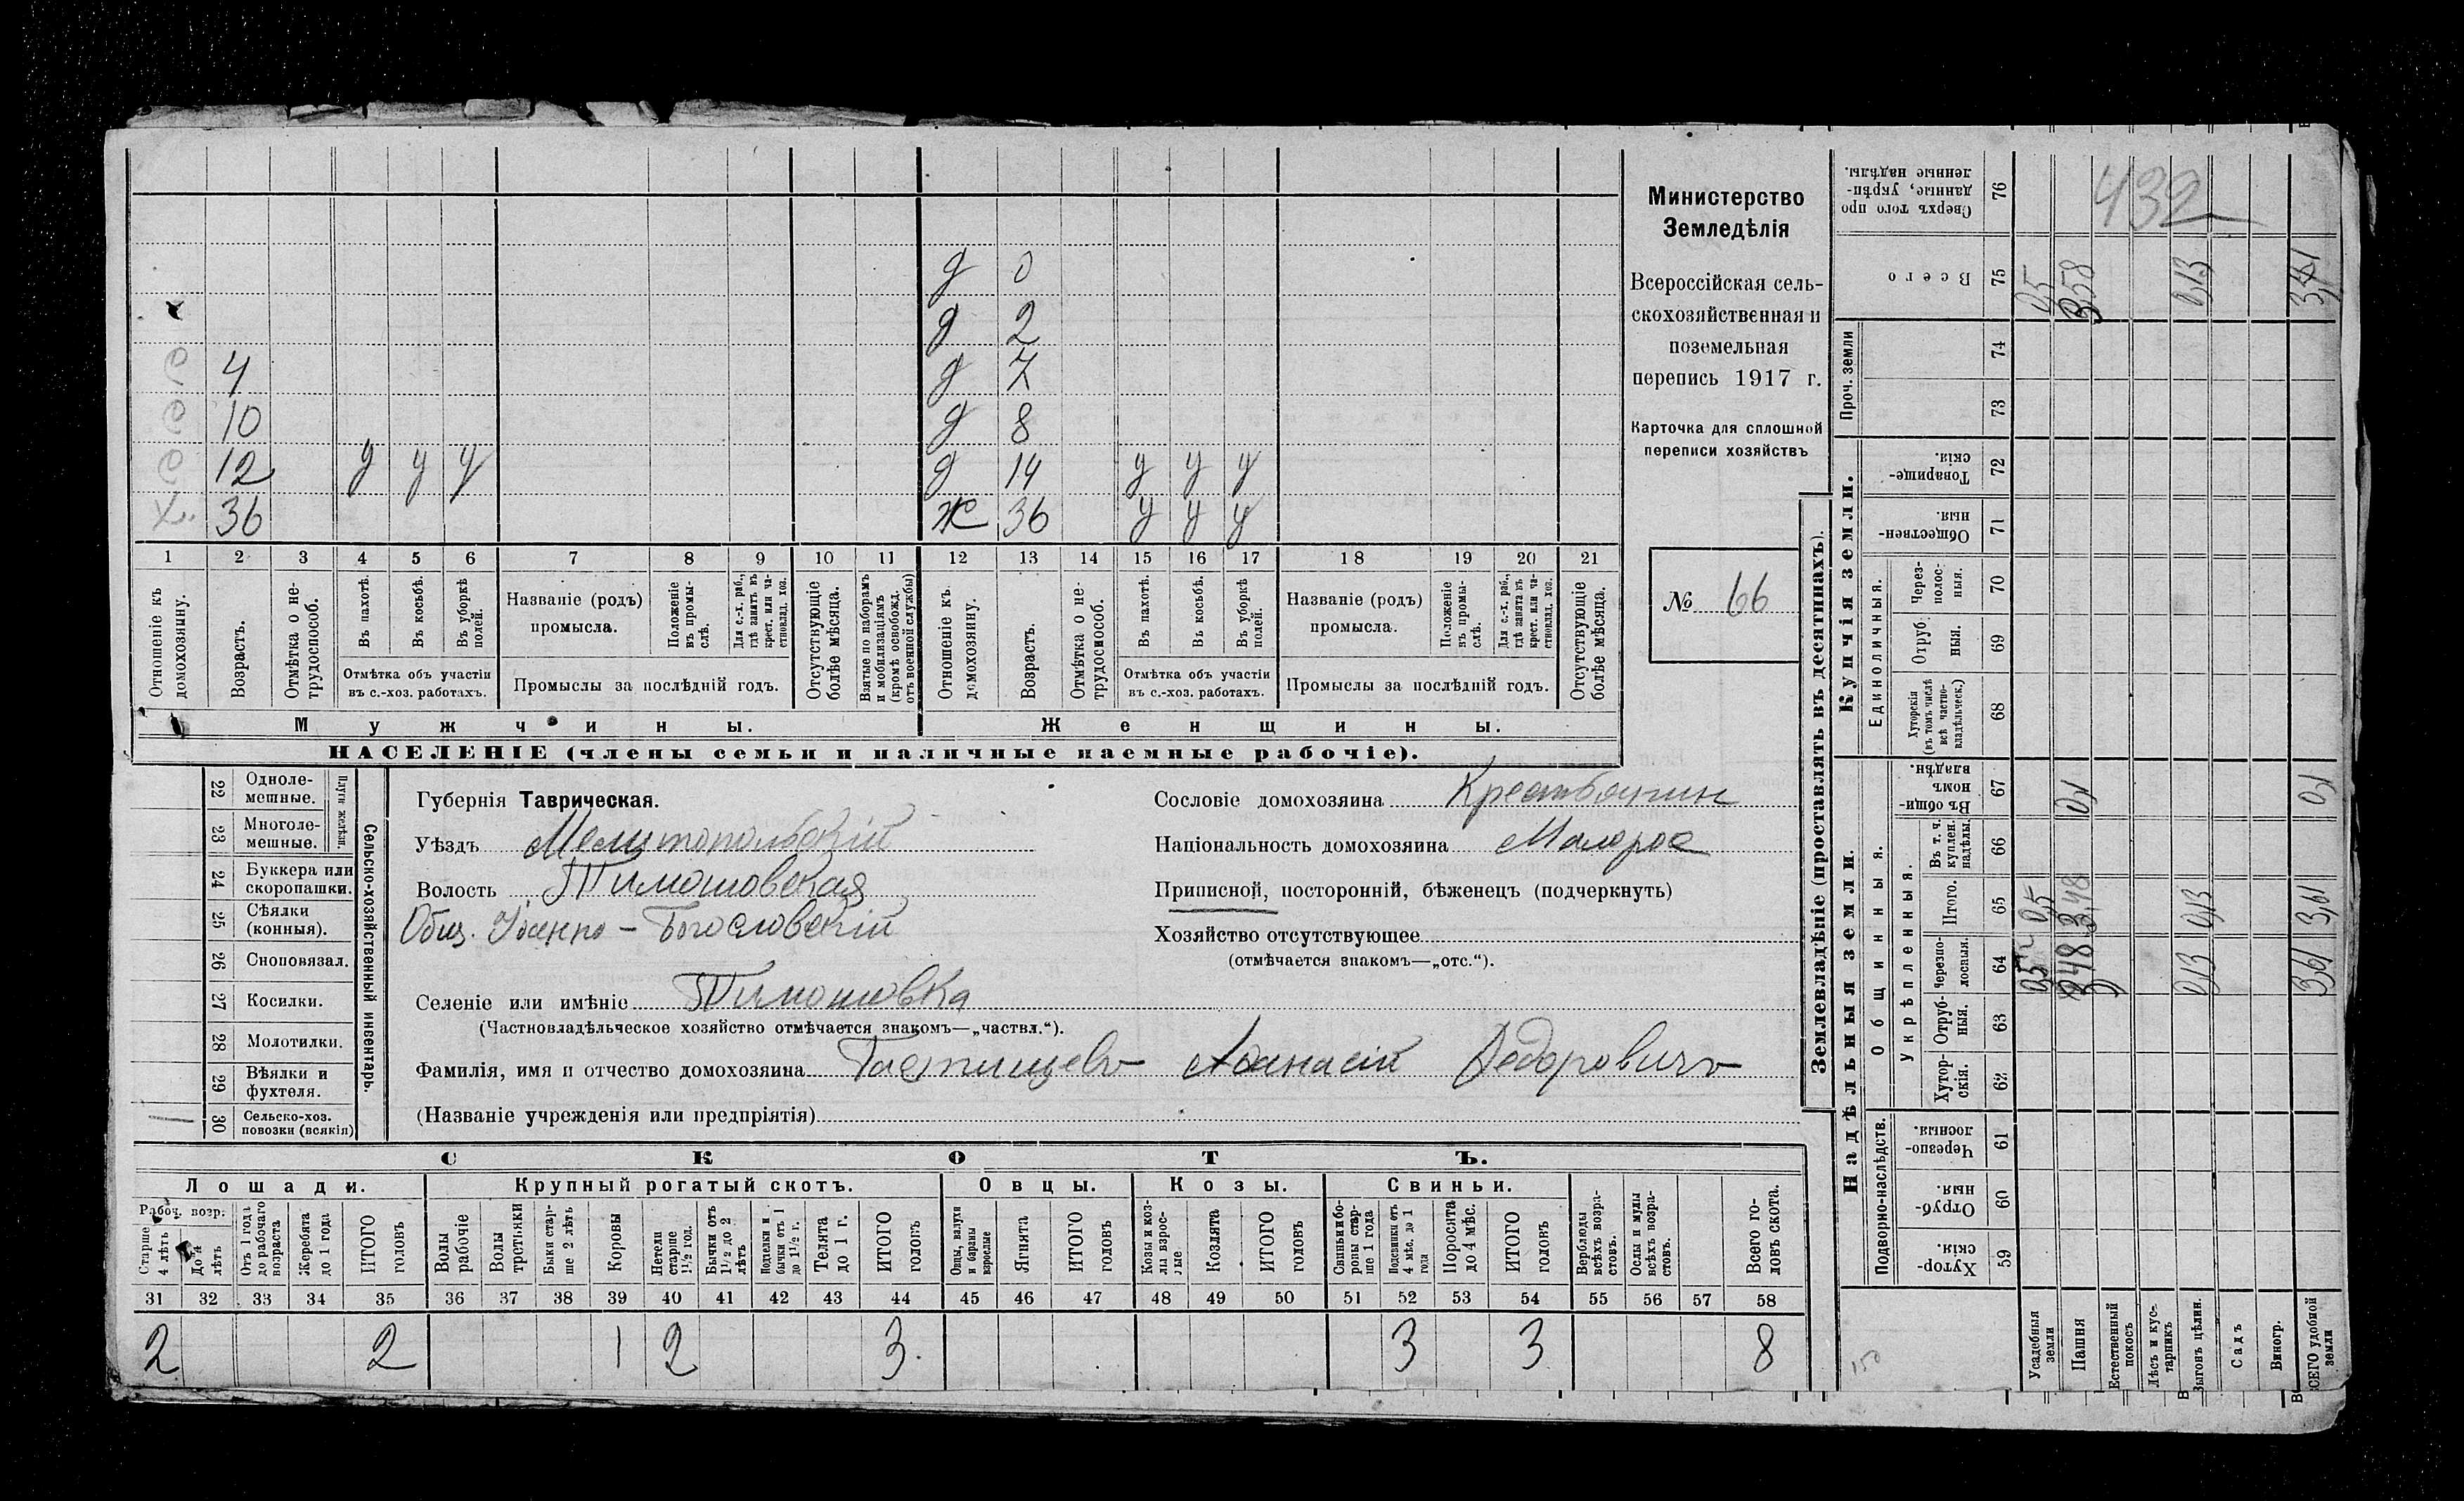 д 0
д 2
с 4 д 7
с 10 д 8
с 12 у у у д 14 у у у
х. 36 ж 36 у у у
1 2 3 4 5 6 7 8 9 10 11 12 13 14 15 16 17 18 19 20 21
Отношеніе къ домохозяину.
Возрастъ.
Отмѣтка о нетрудоспособ.
Въ пахотѣ.
Въ косьбѣ.
Въ уборкѣ полей.
Отмѣтка объ участіи въ с.-хоз. работахъ.
Названіе (родъ) промысла.
Положеніе въ промыслѣ.
Для с.-х. раб., гдѣ занятъ въ крест. или частновлад. хоз.
Промыслы за послѣдній годъ.
Отсутствующіе болѣе мѣсяца.
Взятые по наборамъ и мобилизаціямъ (кромѣ освобожд. отъ военной службы)
Отношеніе къ домохозяину.
Возрастъ.
Отмѣтка о нетрудоспособ.
Въ пахотѣ.
Въ косьбѣ.
Въ уборкѣ полей.
Отмѣтка объ участіи въ с.-хоз. работахъ.
Названіе (родъ) промысла.
Положеніе въ промыслѣ.
Для с.-х. раб., гдѣ занята въ крест. или частновлад. хоз.
Промыслы за послѣдній годъ.
Отсутствующіе болѣе мѣсяца.
Мужчины. Женщины.
НАСЕЛЕНІЕ (члены семьи и наличные наемные рабочіе).
Министерство
Земледѣлія
Всероссійская сель-
скохозяйственная и
поземельная
перепись 1917 г.
Карточка для сплошной
переписи хозяйствъ
№ 66
22 Одноле-
мешные.
23 Многоле-
мешные.
Плуги желѣзн.
24 Буккера или
скоропашки.
25 Сѣялки
(конныя).
26 Сноповязал.
27 Косилки.
28 Молотилки.
29 Вѣялки и
фухтеля.
30 Сельско-хоз.
повозки (всякія)
1
Сельско-хозяйственный инвентарь.
Губернія Таврическая.
Уѣздъ Мелитопольскій
Волость Тимошовская
Общ. Іоанно-Богословскій
Селеніе или имѣніе Тимошовка
(Частновладѣльческое хозяйство отмѣчается знакомъ—„частвл.“).
Фамилія, имя и отчество домохозяина Тастищевъ Афанасій Федоровичъ
(Названіе учрежденія или предпріятія)
Сословіе домохозяина Крестьянин
Національность домохозяина Малорос
Приписной, посторонній, бѣженецъ (подчеркнуть)
Хозяйство отсутствующее
(отмѣчается знакомъ—„отс.“).
СКОТЪ.
Лошади. Крупный рогатый скотъ. Овцы. Козы. Свиньи.
Рабоч. возр.
Старше 4 лѣтъ
До 4 лѣтъ
Отъ 1 года до рабочаго возраста
Жеребята до 1 года
ИТОГО головъ
Волы рабочіе
Волы третьяки
Быки старше 2 лѣтъ
Коровы
Нетели старше 1½ год.
Бычки отъ 1½ до 2 лѣтъ
Телята до 1 г.
ИТОГО головъ
Овцы, валухи и бараны взрослые
Ягнята
ИТОГО головъ
Козы и козлы взрослые
Козлята
ИТОГО головъ
Свиньи и боровы старше 1 года
Подсвинки отъ 4 мѣс. до 1 года
Поросята до 4 мѣс.
ИТОГО головъ
Верблюды всѣхъ возрастовъ.
Ослы и мулы всѣхъ возрастовъ.
Всего головъ скота.
31 32 33 34 35 36 37 38 39 40 41 42 43 44 45 46 47 48 49 50 51 52 53 54 55 56 57 58
2 2 1 2 3. 3 3 8
Землевладѣніе (проставлять въ десятинахъ).
Купчія земли.
Надѣльныя земли.
Сверхъ того проданные, укрѣпленные надѣлы. 76
Всего 75
Проч. земли 74 73
Товарищескія. 72
Общественныя. 71
Единоличныя.
Черезполосныя. 70
Отрубныя. 69
Хуторскія (въ томъ числѣ всѣ частновладѣльческ.) 68
Въ общинномъ владѣн. 67
Общинныя.
Укрѣпленныя.
Въ т. ч. куплен. надѣлы. 66
Итого. 65
Черезполосныя. 64
Отрубныя. 63
Хуторскія. 62
Подворно-наслѣдств.
Черезполосныя. 61
Отрубныя. 60
Хуторскія. 59
432
Усадебныя земли
0,5 0,5 0,5
Пашня
3,48 3,48 0,1 3,58
Естественный покосъ
Лѣсъ и кустарникъ
Выгонъ цѣлин.
0,13 0,13 0,13
Садъ
Виногр.
ВСЕГО удобной земли
3,61 3,61 0,1
150